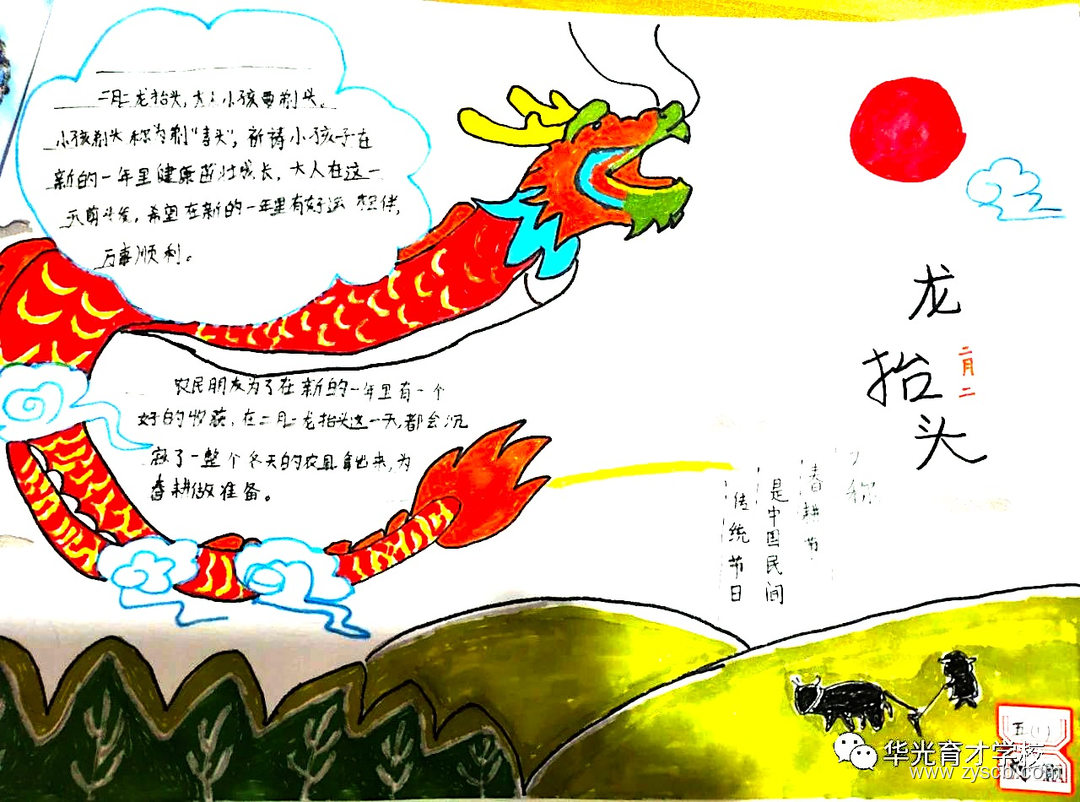 二月二龙抬头，大人小孩要剃头。
小孩剃头称为剃"喜头"，祈祷小孩子在
新的一年里健康茁壮成长，大人在这一
天剪头发，希望在新的一年里有好运相伴，
万事顺利。
农民朋友为了在新的一年里有一个
好的收获，在二月二龙抬头这一天，都会沉
寂了一整个冬天的农具拿出来，为
春耕做准备。
龙抬头
二月二
又称
春耕节
是中国民间
传统节日
五(1)
华光育才学校
www.zyscb.com